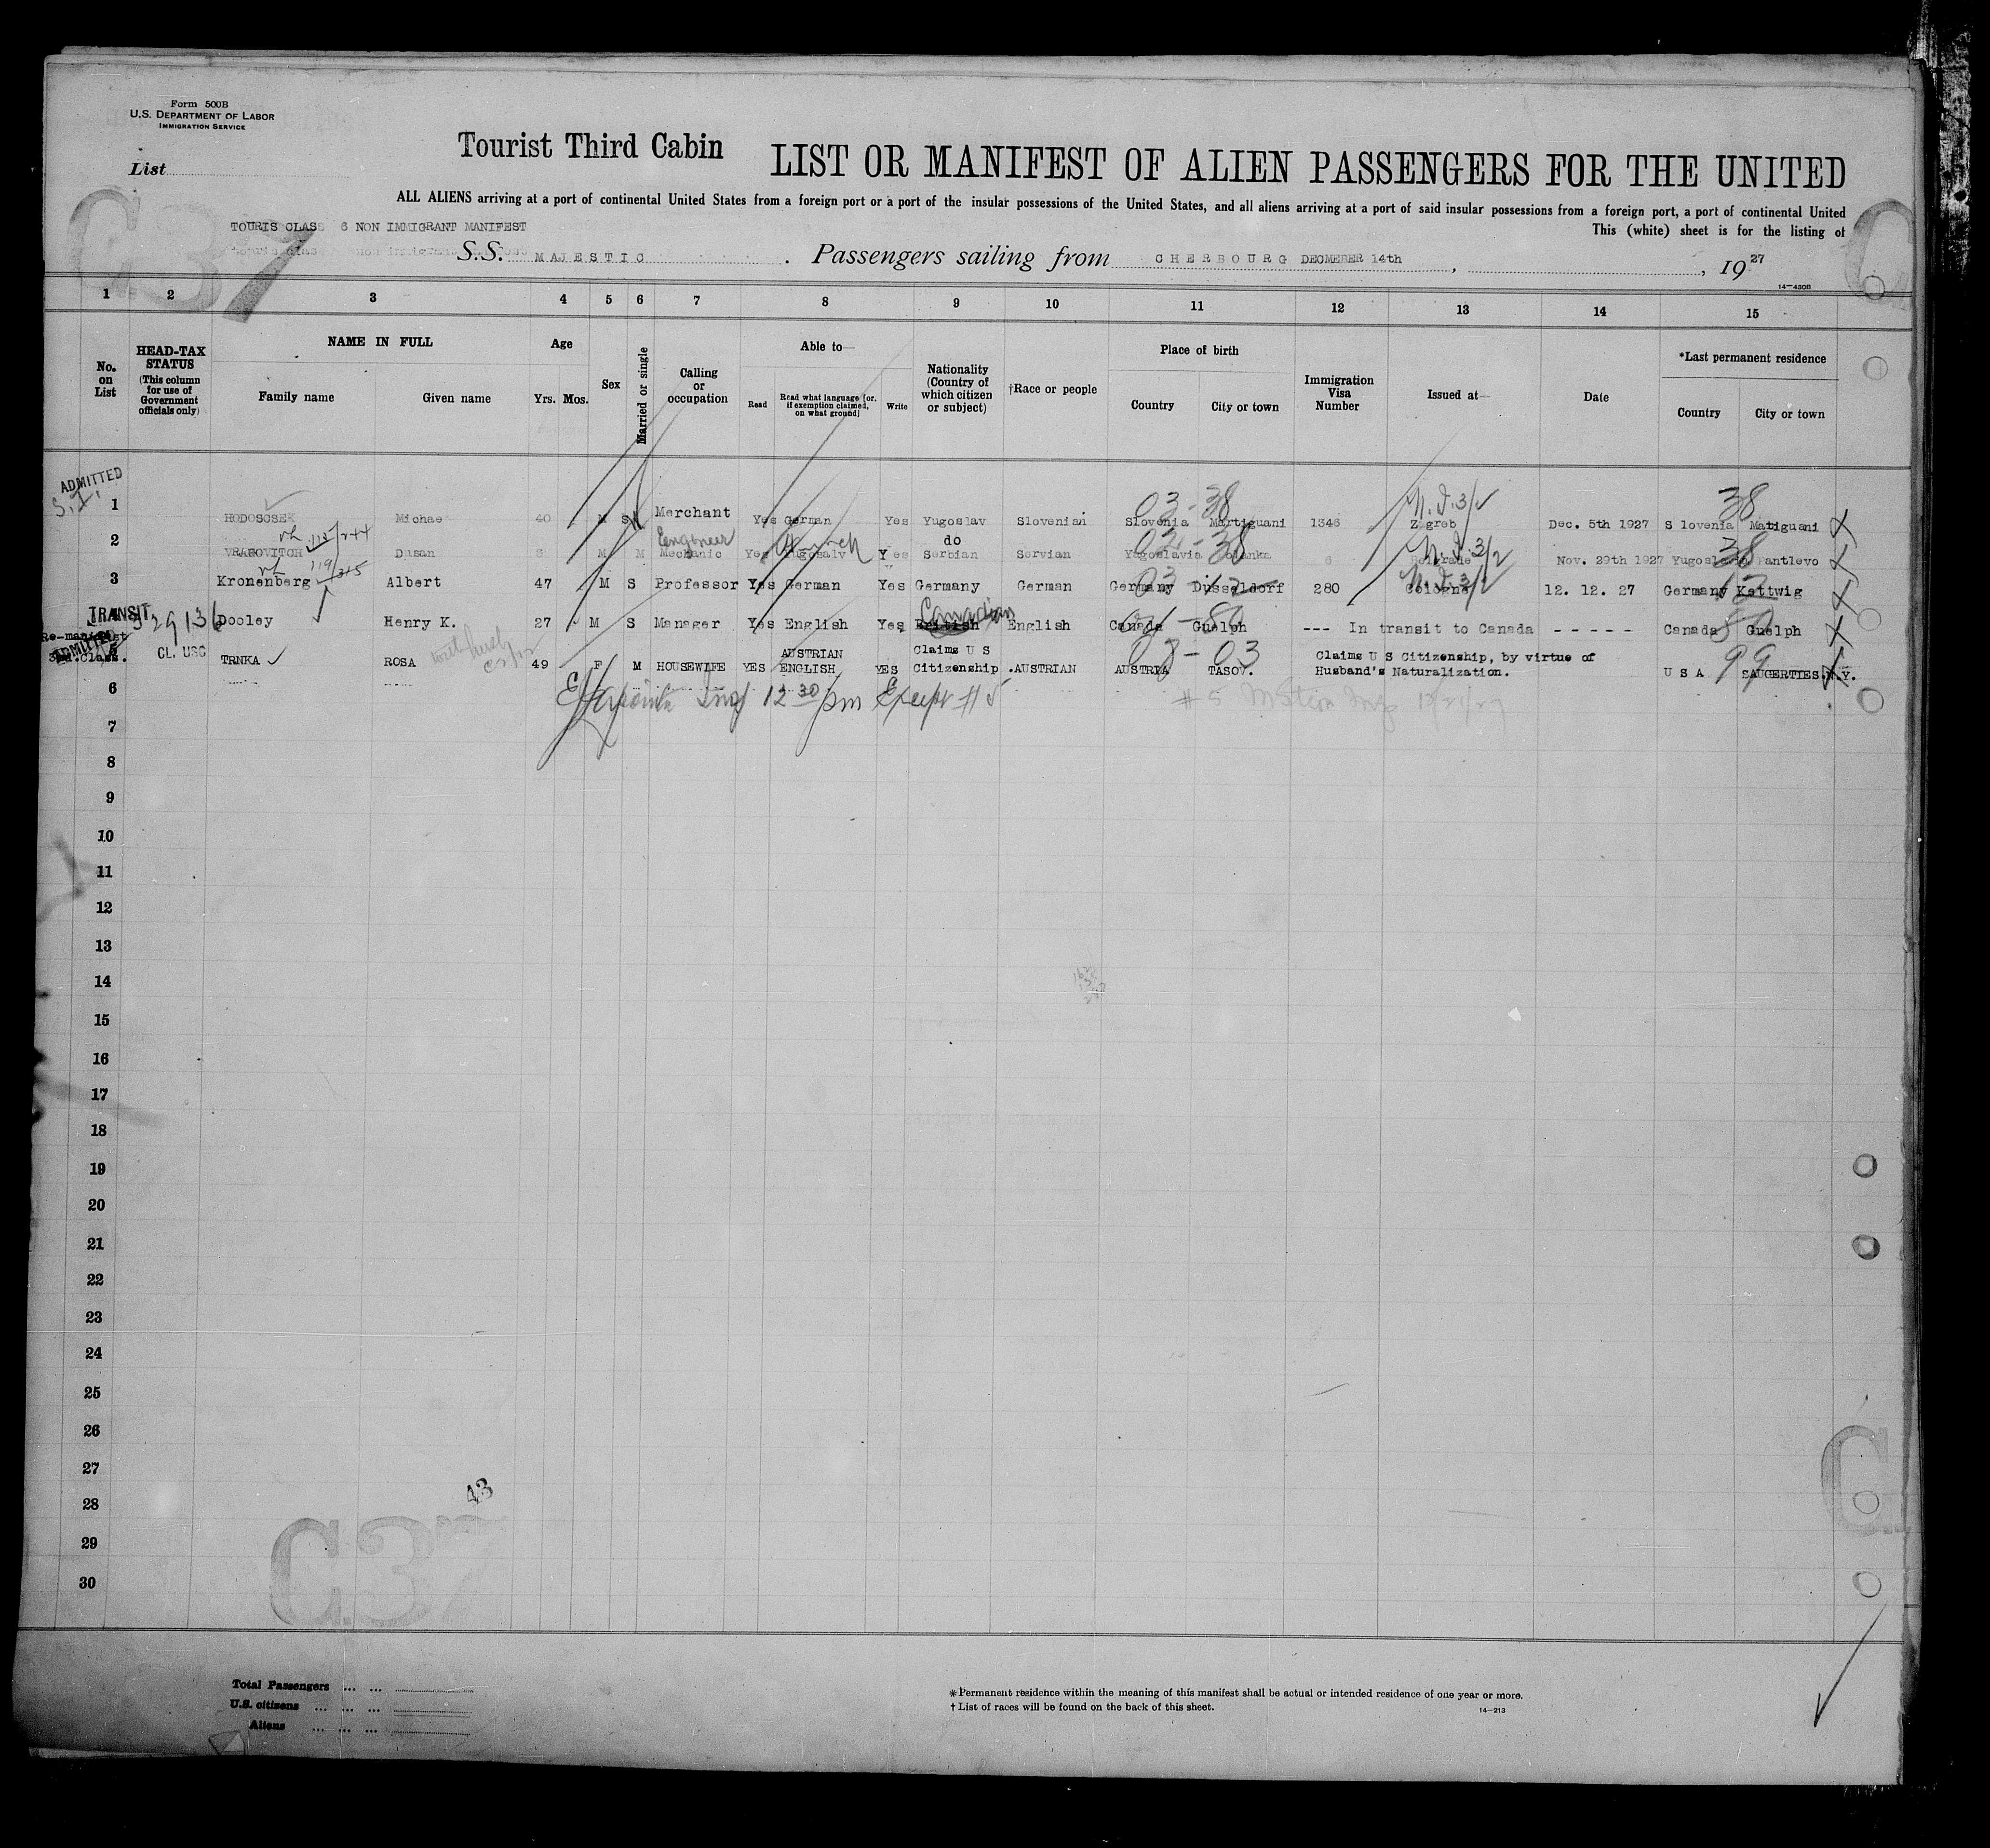 Form 500B
U.S. DEPARTMENT OF LABOR
IMMIGRATION SERVICE
List
Tourist Third Cabin LIST OR MANIFEST OF ALIEN PASSENGERS FOR THE UNITED
ALL ALIENS arriving at a port of continental United States from a foreign port or a port of the insular possessions of the United States, and all aliens arriving at a port of said insular possessions from a foreign port, a port of continental United
This (white) sheet is for the listing of
TOURIS CLASS 6 NON IMMIGRANT MANIFEST
S.S. MAJESTIC Passengers sailing from CHERBOURG DECMEBER 14th , 19 27
14-430B
C37
1 2 3 4 5 6 7 8 9 10 11 12 13 14 15
No. on List
HEAD-TAX STATUS (This column for use of Government officials only)
NAME IN FULL
Family name Given name
Age
Yrs. Mos.
Sex
Married or single
Calling or occupation
Able to—
Read Read what language [or, if exemption claimed, on what ground] Write
Nationality (Country of which citizen or subject)
†Race or people
Place of birth
Country City or town
Immigration Visa Number
Issued at—
Date
*Last permanent residence
Country City or town
ADMITTED
S.I.
03-38 38
1 HODOSCSEK Michae 40 M S Merchant Yes German Yes Yugoslav Slovenian Slovenia Martiguani 1346 Zagreb Dec. 5th 1927 Slovenia Matiguani
Engineer do 38
2 VRAGOVITCH Dusan M M Mechanic Yes Yugosalv Yes Serbian Servian Yugoslavia 6 Belgrade Nov. 29th 1927 Yugoslavia Pantlevo
3 Kronenberg Albert 47 M S Professor Yes German Yes Germany German Germany Dusseldorf 280 Cologne 12. 12. 27 Germany Kettwig
TRANSIT 329136
Dooley Henry K. 27 M S Manager Yes English Yes British Canadian English Canada Guelph --- In transit to Canada - - - - - Canada Guelph
Re-manifest
ADMITTED
2nd.Class.
5 CL. USC TRNKA ROSA 49 F M HOUSEWIFE YES AUSTRIAN ENGLISH YES Claims U S Citizenship .AUSTRIAN AUSTRIA TASOV. Claims U S Citizenship, by virtue of Husband's Naturalization. U S A SAUGERTIES.N.Y.
08-03 99
6
12 30 pm Except #5
7
8
9
10
11
12
13
14
15
16
17
18
19
20
21
22
23
24
25
26
27
28
29
30
43
C37
Total Passengers ... ...
U.S. citizens ... ... ...
Aliens ... ... ...
*Permanent residence within the meaning of this manifest shall be actual or intended residence of one year or more.
† List of races will be found on the back of this sheet.
14-213